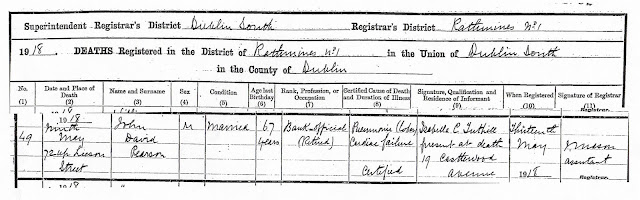 Superintendent Registrar's District Dublin South Registrar's District Rathmines No 1
1918. DEATHS Registered in the District of Rathmines No 1 in the Union of Dublin South
in the County of Dublin
No. (1) Date and Place of Death (2) Name and Surname (3) Sex (4) Condition (5) Age last Birthday (6) Rank, Profession, or Occupation (7) Certified Cause of Death and Duration of Illness (8) Signature, Qualification and Residence of Informant (9) When Registered (10) Signature of Registrar (11)
1918 Registrar.
Ninth John M Married 67 Bank Official Pneumonia Isabella C. Tuthill Thirteenth
49 May David years (Retired) Cardiac failure present at death May
72 Up Leeson Pearson 19 Castlewood assistant
Street Certified Avenue 1918 Registrar.
1918